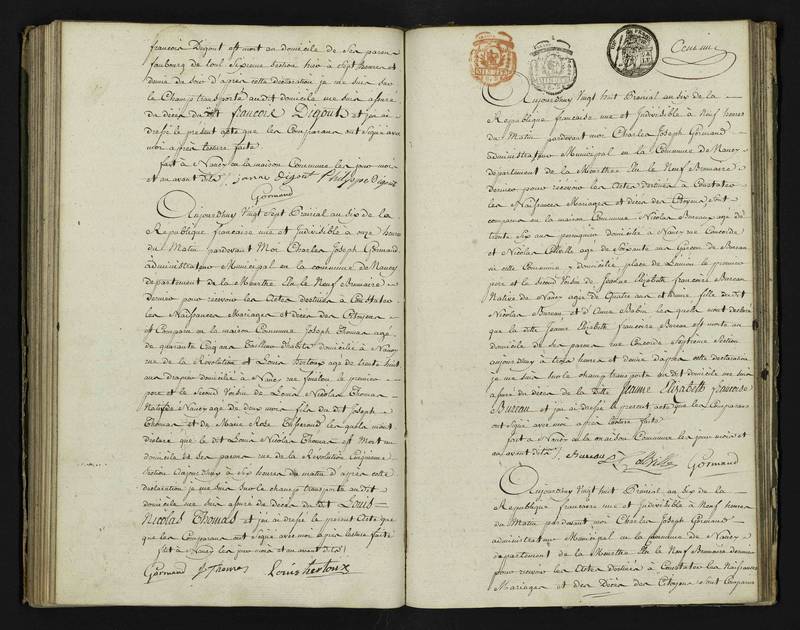 francois Digout est mort au domicile de ses parens
faubourg de section hier à Sept heures et
demie du soir d'après cette déclaration je me suis sur
le Champ transporté au dit domicile me suis assuré
du décès du dit francois Digout et j'ai
dressé le present acte que les Comparans ont signé avec
moi après lecture faite
fait à Nancy en la maison Commune les jour mois
et an avant dits Digout Philippe Digout
Gormand
Aujourdhuy Vingt Sept Prairial an six de la
République francaise une et Indivisible à onze heures
du Matin pardevant Moi Charles Joseph Gormand
administrateur Municipal en la commune de Nancy
département de la Meurthe Elu le Neuf Brumaire
dernier pour recevoir les Actes destinés à Constater
les Naissances Mariages et décès des Citoyens
et Comparu en la maison Commune Joseph Thomas agé
de quarante Cinq ans Tailleur d'habits domicilié à Nancy
rue de la Révolution et Louis hertoux agé de trente huit
ans drapier domicilié à Nancy rue le premier
pere et le Second Voisin de Louis Nicolas Thomas
Natif de Nancy agé de deux mois fils du dit Joseph
Thomas et de Marie Rose les quels m'ont
déclaré que le dit Louis Nicolas Thomas est Mort au
domicile de ses parens rue de la Révolution Cinquieme
Section aujourdhuy à six heures du matin d'après cette
déclaration je me suis sur le champ transporté au dit
domicile me suis assuré du décès du dit Louis
Nicolas Thomas et j'ai dressé le present Acte que
que les Comparans ont Signé avec moi après lecture faite
fait à Nancy les jour mois et an avant dits
Gormand J Thomas Louis hertoux
Aujourdhuy Vingt huit Prairial an six de la
République francaise une et Indivisible à Neuf heures
du Matin pardevant moi Charles Joseph Gormand
administrateur Municipal en la Commune de Nancy
departement de la Meurthe Elu le Neuf Brumaire
dernier pour recevoir les Actes destinés à Constater
les Naissances Mariages et décès des Citoyens sont
comparus en la maison Commune Nicolas Bureau agé de
trente six ans perruquier domicilié à Nancy rue Concorde
et Nicolas agé de Soixante ans Garcon de Bureau
en cette Commune y domicilié place de le premier
pere et le second Voisin de Jeanne Elizabeth francoise Bureau
Native de Nancy agée de Quatre ans et demie fille du dit
Nicolas Bureau et d'Anne les quels m'ont déclaré
que la dite Jeanne Elizabeth francoise Bureau est morte au
domicile de ses parens rue Concorde Septieme Section
aujourdhuy à trois heures et demie d'après cette déclaration
je me suis sur le champ transporté au dit domicile me suis
assuré du décès de la ditte Jeanne Elizabeth francoise
Bureau et j'ai dressé le present acte que les Comparans
ont signé avec moi après lecture faite
fait à Nancy en la maison Commune les jour mois et
an avant dits Bureau Gormand
Aujourdhuy Vingt huit Prairial an Six de la
République francaise une et Indivisible à Neuf heures
du Matin pardevant moi Charles Joseph Gormand
administrateur Municipal en la Commune de Nancy
departement de la Meurthe Elu le Neuf Brumaire dernier
pour recevoir les Actes destinés à Constater les Naissances
Mariages et des Décès des Citoyens sont Comparus